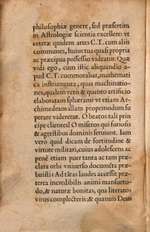 philosophiæ genere, sed præsertim
in Astrologiæ scientia excellere: ut
ceteræ quidem artes C. T. cum aliis
communes, huius tua quasi propria
ac præcipua possessio videatur. Quæ
vidi ego, cum istic aliquandiu a-
pud C. T. commoratus, mathemati
ca instrumenta, quas machinatio-
nes, qualem vero & quanto artificio
elaboratam sphæram? ut etiam Ar-
chimedeam illam propemodum su-
perare videretur. O beatos tali prin
cipe clientes! O miseros qui furiosis
& agrestibus dominis serviunt. Iam
vero quid dicam de fortitudine &
virtute militari, cuius adolescens ac
pene etiam puer tanta ac tam præ-
clara orbi universo documenta præ-
buisti? Ad teas laudes accessit præ-
terea incredibilis animi mansuetu-
do, & naturæ bonitas, qua litteratos
viros complecteris & quantum Deus